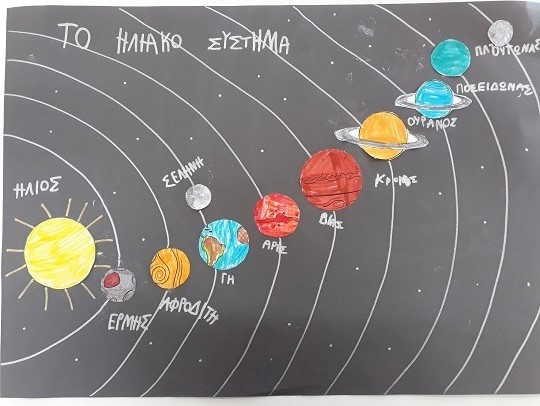 ΤΟ ΗΛΙΑΚΟ ΣΥΣΤΗΜΑ
ΗΛΙΟΣ
ΕΡΜΗΣ
ΑΦΡΟΔΙΤΗ
ΣΕΛΗΝΗ
ΓΗ
ΑΡΗΣ
ΔΙΑΣ
ΚΡΟΝΟΣ
ΟΥΡΑΝΟΣ
ΠΟΣΕΙΔΩΝΑΣ
ΠΛΟΥΤΩΝΑΣ